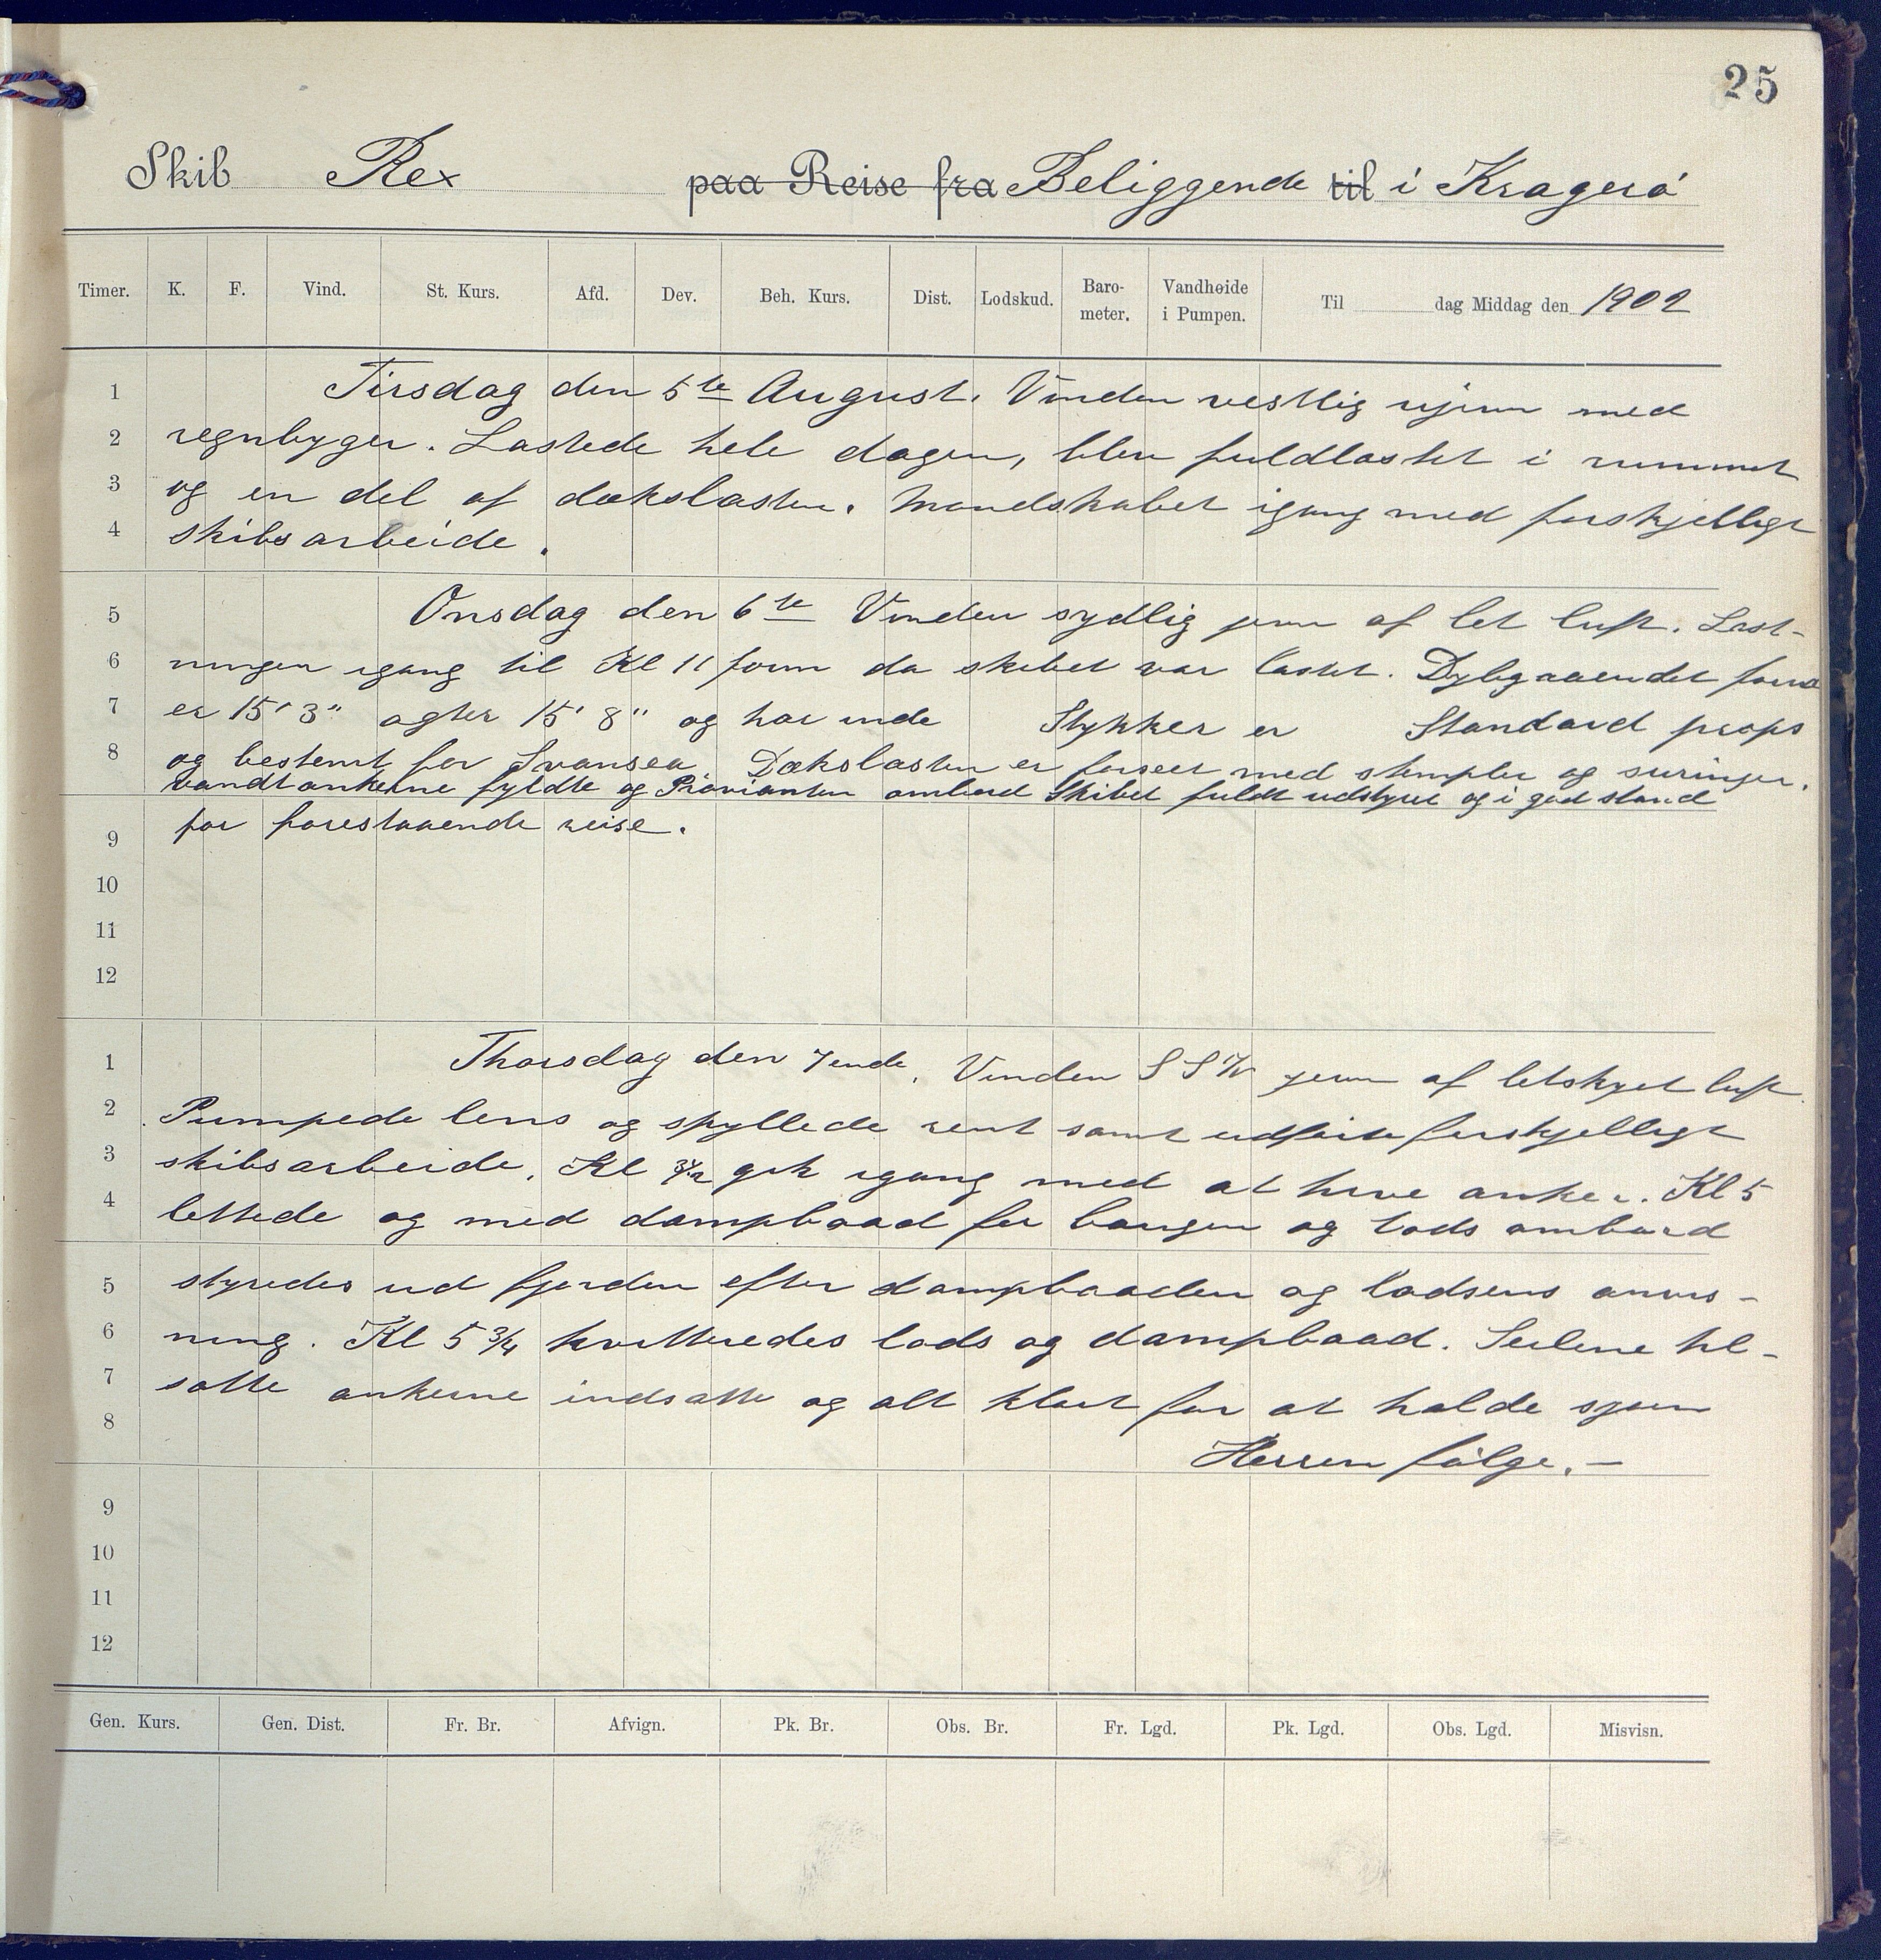 25
Skib Rex paa Reise fra Beliggende til i Kragerø
Timer. K. F. Vind. St. Kurs. Afd. Dev. Beh. Kurs. Dist. Lodskud. Baro-meter. Vandhøide i Pumpen. Til dag Middag den 1902
1 Tirsdag den 5te August. Vinden vestlig ujevn med
2 regnbyger. Lastede hele dagen, blev fuldlastet i rummet
3 og en del af dækslasten. Mandskabet igang med forskjelligt
4 skibsarbeide.
5 Onsdag den 6te Vinden sydlig jevn af let luft. Last-
6 ningen igang til Kl 11 form da skibet var lastet. Dybgaaendet forud
7 er 15' 3" agter 15' 8" og har inde Stykker er Standard props
8 og bestemt for Svansea Dækslasten er forseet med stempler og suringer.
vandtankerne fyldte og Provianten ombord Skibet fuldt udstyret og i god stand
9 for forestaaende reise.
10
11
12
1 Thorsdag den 7ende. Vinden SSW jevn af letskyet luft.
2 Pumpede lens og spyllede rent samt udførte forskjelligt
3 skibsarbeide. Kl gik igang med at hive anker. Kl 5
4 lettede og med dampbaad for baugen og lods ombord
5 styredes ud fjorden efter dampbaaden og lodsens anvis-
6 ning. Kl 5 3/4 kvitteredes lods og dampbaad. Seilene til-
7 satte ankerne indsatte og alt klart for at holde sjøen
8 Herren følge. –
9
10
11
12
Gen. Kurs. Gen. Dist. Fr. Br. Afvign. Pk. Br. Obs. Br. Fr. Lgd. Pk. Lgd. Obs. Lgd. Misvisn.